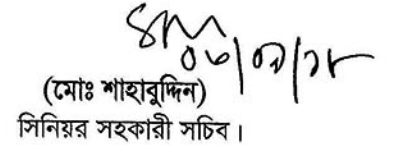 ০৮/০৭/১৮
(মোঃ শাহাবুদ্দিন)
সিনিয়র সহকারী সচিব।